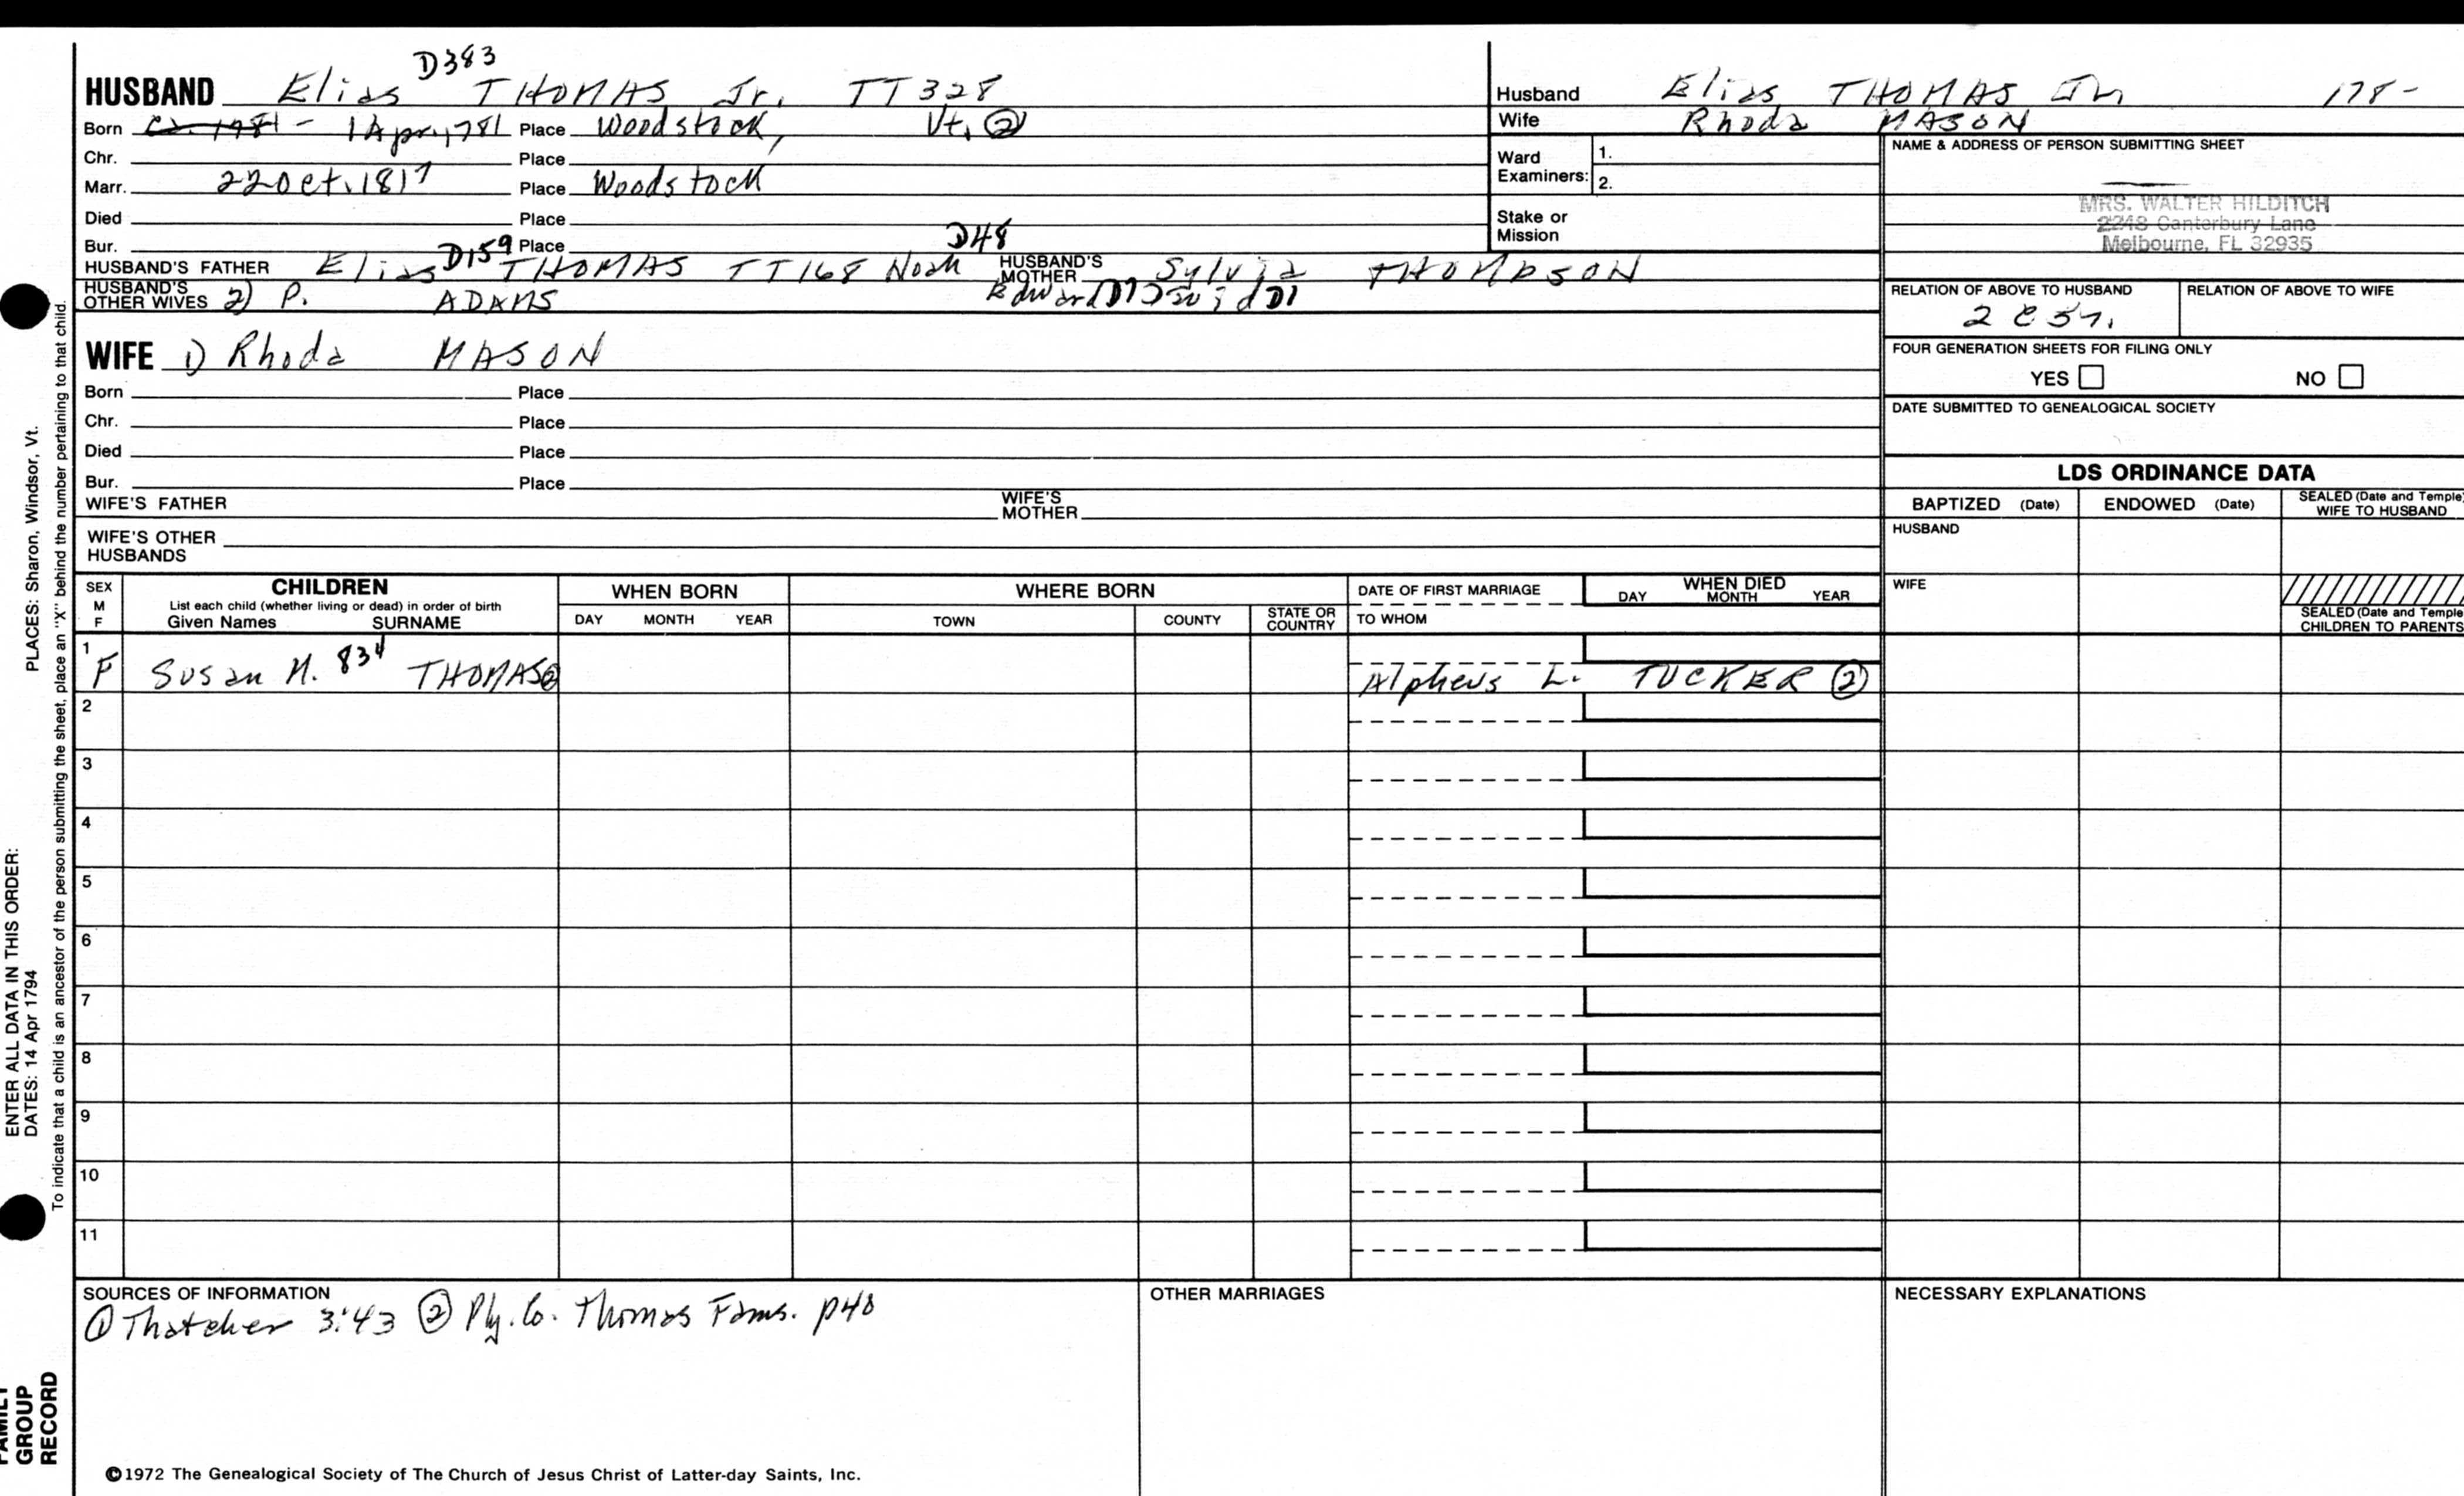 D383
HUSBAND Elias THOMAS Jr. TT328
Born 1 Apr. 1781 Place Woodstock, Vt. ②
Chr. Place
Marr. 22 Oct. 1817 Place Woodstock
Died Place
Bur. Place
D159 D48
HUSBAND'S FATHER Elias THOMAS TT168 Noah HUSBAND'S MOTHER Sylvia THOMPSON
HUSBAND'S OTHER WIVES 2) P. ADAMS Edward D7 David D1
WIFE 1) Rhoda MASON
Born Place
Chr. Place
Died Place
Bur. Place
WIFE'S FATHER WIFE'S MOTHER
WIFE'S OTHER HUSBANDS
Husband Elias THOMAS Jr 178-
Wife Rhoda MASON
Ward Examiners: 1.
2.
Stake or Mission
NAME & ADDRESS OF PERSON SUBMITTING SHEET
MRS. WALTER HILDITCH
2248 Canterbury Lane
Melbourne, FL 32935
RELATION OF ABOVE TO HUSBAND RELATION OF ABOVE TO WIFE
FOUR GENERATION SHEETS FOR FILING ONLY
YES NO
DATE SUBMITTED TO GENEALOGICAL SOCIETY
LDS ORDINANCE DATA
BAPTIZED (Date) ENDOWED (Date) SEALED (Date and Temple) WIFE TO HUSBAND
HUSBAND
WIFE
SEALED (Date and Temple) CHILDREN TO PARENTS
SEX M F
CHILDREN
List each child (whether living or dead) in order of birth
Given Names SURNAME
WHEN BORN
DAY MONTH YEAR
WHERE BORN
TOWN COUNTY STATE OR COUNTRY
DATE OF FIRST MARRIAGE
TO WHOM
WHEN DIED
DAY MONTH YEAR
1 F Susan M. 834 THOMAS② Alpheus L. TUCKER ②
2
3
4
5
6
7
8
9
10
11
SOURCES OF INFORMATION
① Thatcher 3:43 ② Ply. Co. Thomas Fams. p40
OTHER MARRIAGES
NECESSARY EXPLANATIONS
©1972 The Genealogical Society of The Church of Jesus Christ of Latter-day Saints, Inc.
ENTER ALL DATA IN THIS ORDER:
DATES: 14 Apr 1794 PLACES: Sharon, Windsor, Vt.
To indicate that a child is an ancestor of the person submitting the sheet, place an "X" behind the number pertaining to that child.
FAMILY
GROUP
RECORD